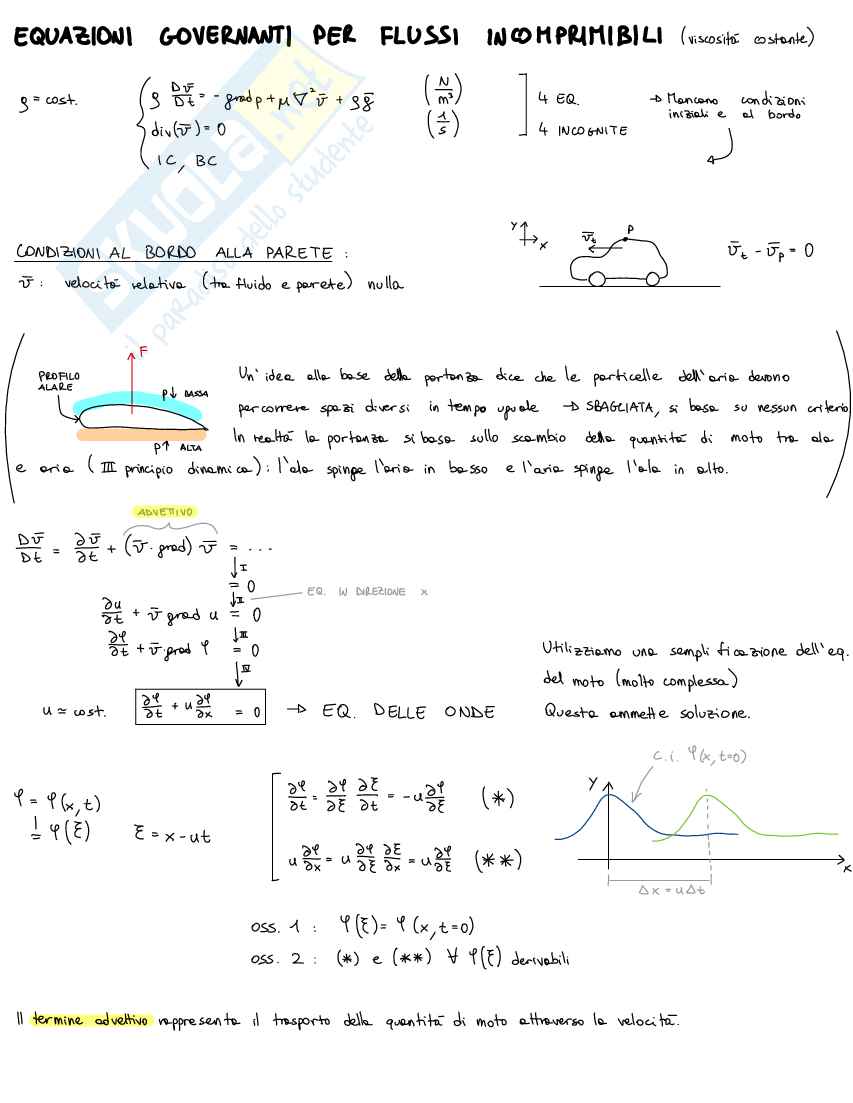 EQUAZIONI GOVERNANTI PER FLUSSI INCOMPRIMIBILI (viscosità costante)
ρ = cost.
ρ Dv̄/Dt = - grad p + μ ∇² v̄ + ρḡ (N/m³)
div(v̄) = 0 (1/s)
IC, BC
4 EQ.
4 INCOGNITE
→ Mancano condizioni
iniziali e al bordo
CONDIZIONI AL BORDO ALLA PARETE :
v̄ : velocità relativa (tra fluido e parete) nulla
Y
X
v̄t
P
v̄t - v̄p = 0
F
PROFILO
ALARE
P↓ BASSA
P↑ ALTA
Un'idea alla base della portanza dice che le particelle dell'aria devono
percorrere spazi diversi in tempo uguale → SBAGLIATA, si basa su nessun criterio
In realtà la portanza si basa sullo scambio della quantità di moto tra ala
e aria (III principio dinamica): l'ala spinge l'aria in basso e l'aria spinge l'ala in alto.
ADVETTIVO
Dv̄/Dt = ∂v̄/∂t + (v̄·grad) v̄ = ...
↓ I
= 0
↓ II EQ. IN DIREZIONE x
∂u/∂t + v̄·grad u = 0
↓ III
∂φ/∂t + v̄·grad φ = 0
↓ IV
u ≃ cost. ∂φ/∂t + u ∂φ/∂x = 0 → EQ. DELLE ONDE
Utilizziamo una semplificazione dell'eq.
del moto (molto complessa)
Questa ammette soluzione.
φ = φ(x,t)
!= φ(ξ) ξ = x - ut
∂φ/∂t = ∂φ/∂ξ ∂ξ/∂t = -u ∂φ/∂ξ (*)
u ∂φ/∂x = u ∂φ/∂ξ ∂ξ/∂x = u ∂φ/∂ξ (**)
c.i. φ(x,t=0)
Y
x
Δx = uΔt
oss. 1 : φ(ξ) = φ(x,t=0)
oss. 2 : (*) e (**) ∀ φ(ξ) derivabili
Il termine advettivo rappresenta il trasporto della quantità di moto attraverso la velocità.
SKUOLA.net
il paradiso dello studente